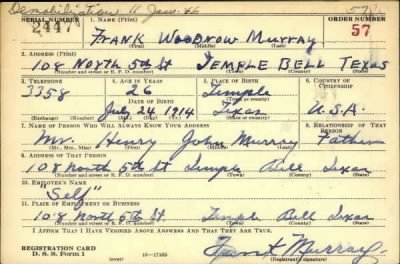 Demobilization 11 Jan. 46
SERIAL NUMBER 1. NAME (Print) ORDER NUMBER
2447 FRANK WOODROW MURRAY 57
(First) (Middle) (Last)
2. ADDRESS (Print)
108 NORTH 5th ST TEMPLE BELL TEXAS
(Number and street or R. F. D. number) (Town) (County) (State)
3. TELEPHONE 4. AGE IN YEARS 5. PLACE OF BIRTH 6. COUNTRY OF CITIZENSHIP
3358 26 Temple
DATE OF BIRTH (Town or county)
July 24 1914 Texas U.S.A.
(Exchange) (Number) (Mo.) (Day) (Yr.) (State or country)
7. NAME OF PERSON WHO WILL ALWAYS KNOW YOUR ADDRESS 8. RELATIONSHIP OF THAT PERSON
Mr. Henry John Murray Father
(Mr., Mrs., Miss) (First) (Middle) (Last)
9. ADDRESS OF THAT PERSON
108 North 5th St Temple Bell Texas
(Number and street or R. F. D. number) (Town) (County) (State)
10. EMPLOYER'S NAME
"Self"
11. PLACE OF EMPLOYMENT OR BUSINESS
108 North 5th St. Temple Bell Texas
(Number and street or R. F. D. number) (Town) (County) (State)
I AFFIRM THAT I HAVE VERIFIED ABOVE ANSWERS AND THAT THEY ARE TRUE.
REGISTRATION CARD
D. S. S. Form 1 (over) 16—17105 Frank Murray